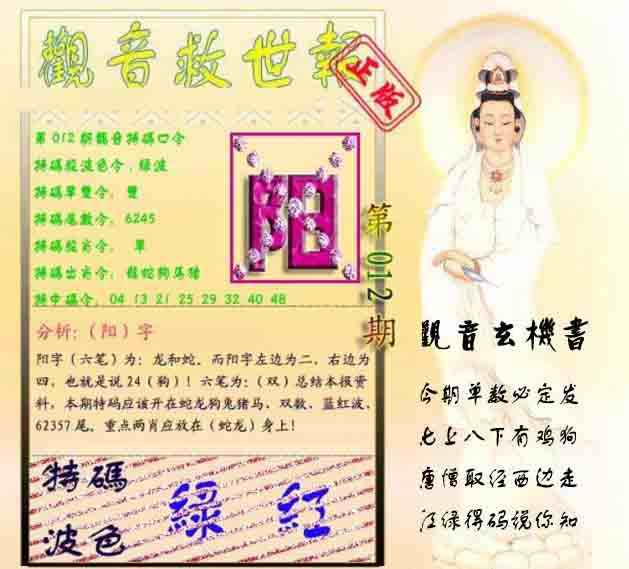 觀音救世報
正版
第012期觀音特碼口令
特碼綻波色令：綠波
特碼單雙令：雙
特碼尾數令：6245
特碼綻肖令： 單
特碼出肖令：龍蛇狗馬猪
独中碼令：04 13 21 25 29 32 40 48
阳
第012期
分析:（阳）字
阳字（六笔）为：龙和蛇。而阳字左边为二，右边为
四，也就是说24（狗）！六笔为：（双）总结本报资
料，本期特码应该开在蛇龙狗兔猪马，双数、蓝红波，
62357尾。重点两肖应放在（蛇龙）身上！
特碼
波色
綠 红
觀音玄機書
今期单数必定发
七上八下有鸡狗
唐僧取经西边走
江绿得码说你知